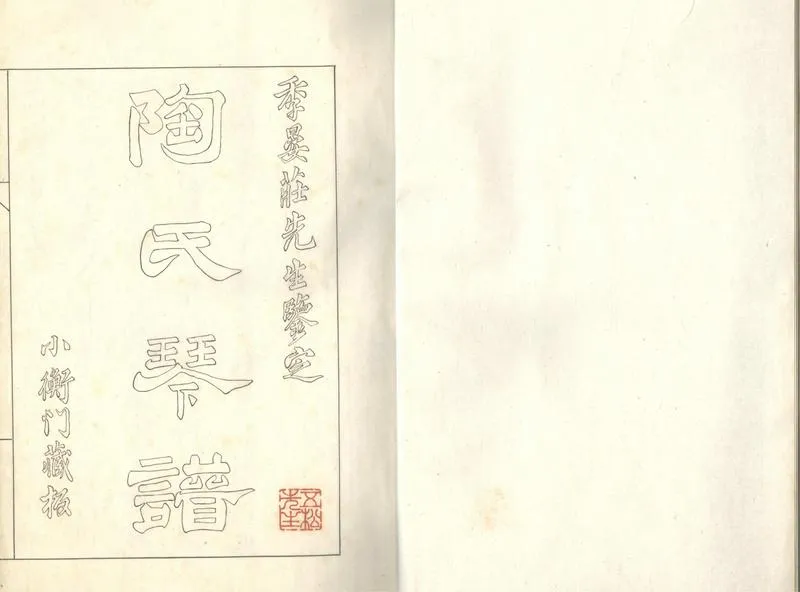 季晏莊先生鑒定
陶氏琴譜
小衡门藏板
五松先生